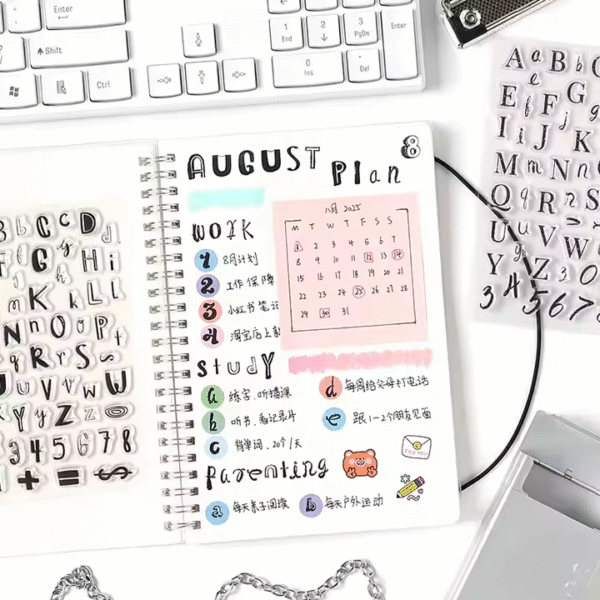 Enter
Shift
Ctrl
1
End
2
3
PgDn
Enter
0
Ins
.
Del
AUGUST
Plan
8
WORK
1 8月计划
2 工作保障
3 小红书笔记
4 淘宝店上新
八月 2025
M T W T F S S
1 2 3 4 5 6 7
8 9 10 11 12 13 14
15 16 17 18 19 20 21
22 23 24 25 26 27 28
29 30 31
STUDY
a 练字.听播课
b 听书.看记录片
c 背单词.20个/天
d 每周给父母打电话
e 跟1-2个朋友见面
Parenting
a 每天亲子阅读
b 每天户外运动
B b C c D d
F f G g
H i
K k L l
N n O o P p
R r S s
U u V v W w
Y y Z z
3 4 5 6 7 8
+ = $
A a B b C
E e F f G g
I i J j K
M m N n
Q q R r S
U u V v W
Y y Z 3 0
3 4 5 6 7 8